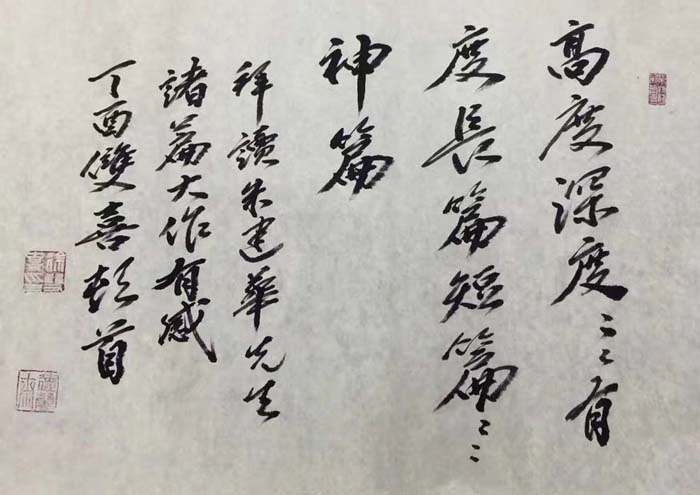 高度深度ミミ有
度長篇短篇ミミ
神篇
拜讀朱建華先生
諸篇大作有感
丁酉雙喜頓首